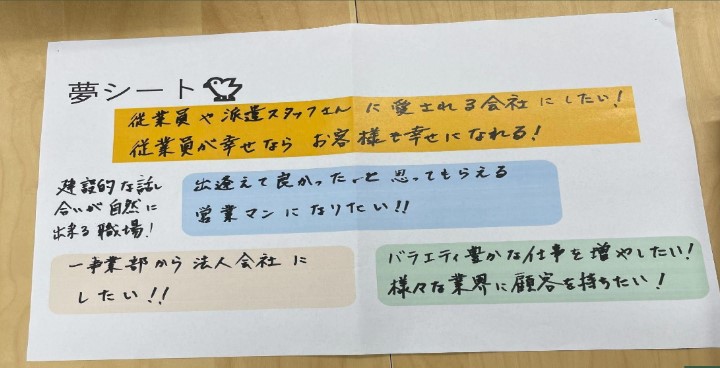 夢シート
従業員や派遣スタッフさんに愛される会社にしたい!
従業員が幸せなら お客様も幸せになれる!
建設的な話し
合いが自然に
出来る職場!
出逢えて良かった…と思ってもらえる
営業マンになりたい!!
一事業部から法人会社に
したい!!
バラエティ豊かな仕事を増やしたい!
様々な業界に顧客を持ちたい!